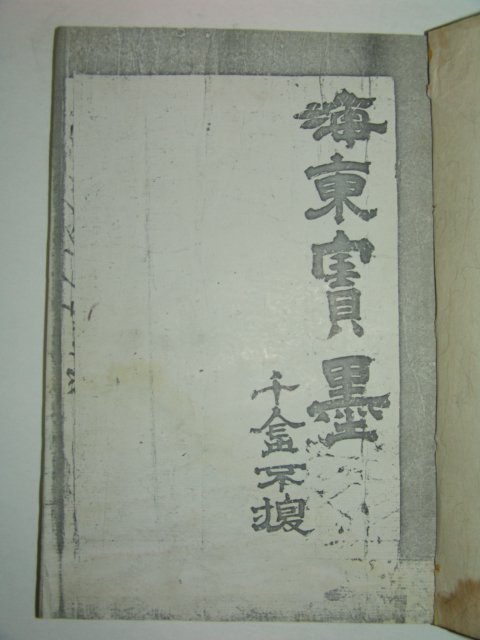 海東寶墨
千金不換